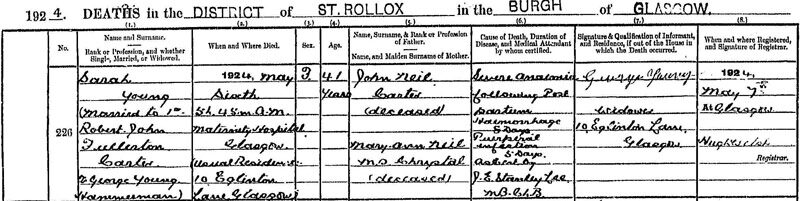 1924. DEATHS in the DISTRICT of ST. ROLLOX in the BURGH of GLASGOW.
(1.) (2.) (3.) (4.) (5.) (6.) (7.) (8.)
No.
Name and Surname.
Rank or Profession, and whether Single, Married, or Widowed.
When and Where Died.
Sex.
Age.
Name, Surname, & Rank or Profession of Father.
Name, and Maiden Surname of Mother.
Cause of Death, Duration of Disease, and Medical Attendant by whom certified.
Signature & Qualification of Informant, and Residence, if out of the House in which the Death occurred.
When and where Registered, and Signature of Registrar.
226
Sarah
Young
(Married to 1st
Robert John
Fullerton
Carter
2 George Young
Hammerman)
1924, May
Sixth
5h. 45m. A.M.
Maternity Hospital
Glasgow
(Usual Residence
10 Eglinton
Lane, Glasgow)
F.
41
Years
John Neil
Carter
(deceased)
Mary Ann Neil
M.S. Chrystal
(deceased)
Severe Anaemia
following Post
Partum
Haemorrhage
5 Days
Puerperal
infection
5 Days
As cert by
J. E. Stanley Lee
M.B. Ch.B.
George Young
Widower
10 Eglinton Lane,
Glasgow
1924,
May 7th
At Glasgow
Registrar.